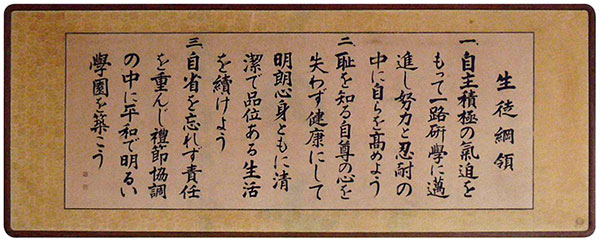 生徒綱領
一、自主積極の氣迫を
もって一路研學に邁
進し努力と忍耐の
中に自らを髙めよう
二、恥を知る自尊の心を
失わず健康にして
明朗心身ともに清
潔で品位ある生活
を續けよう
三、自省を忘れず責任
を重んじ禮節協調
の中に平和で明るい
學園を築こう